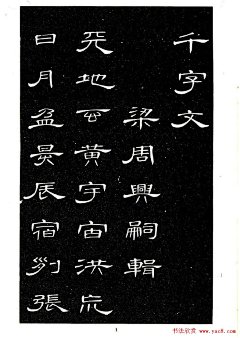 千字文
梁周興嗣輯
天地玄黃宇宙洪荒
日月盈昃辰宿列張
1
书法欣赏 www.yac8.com